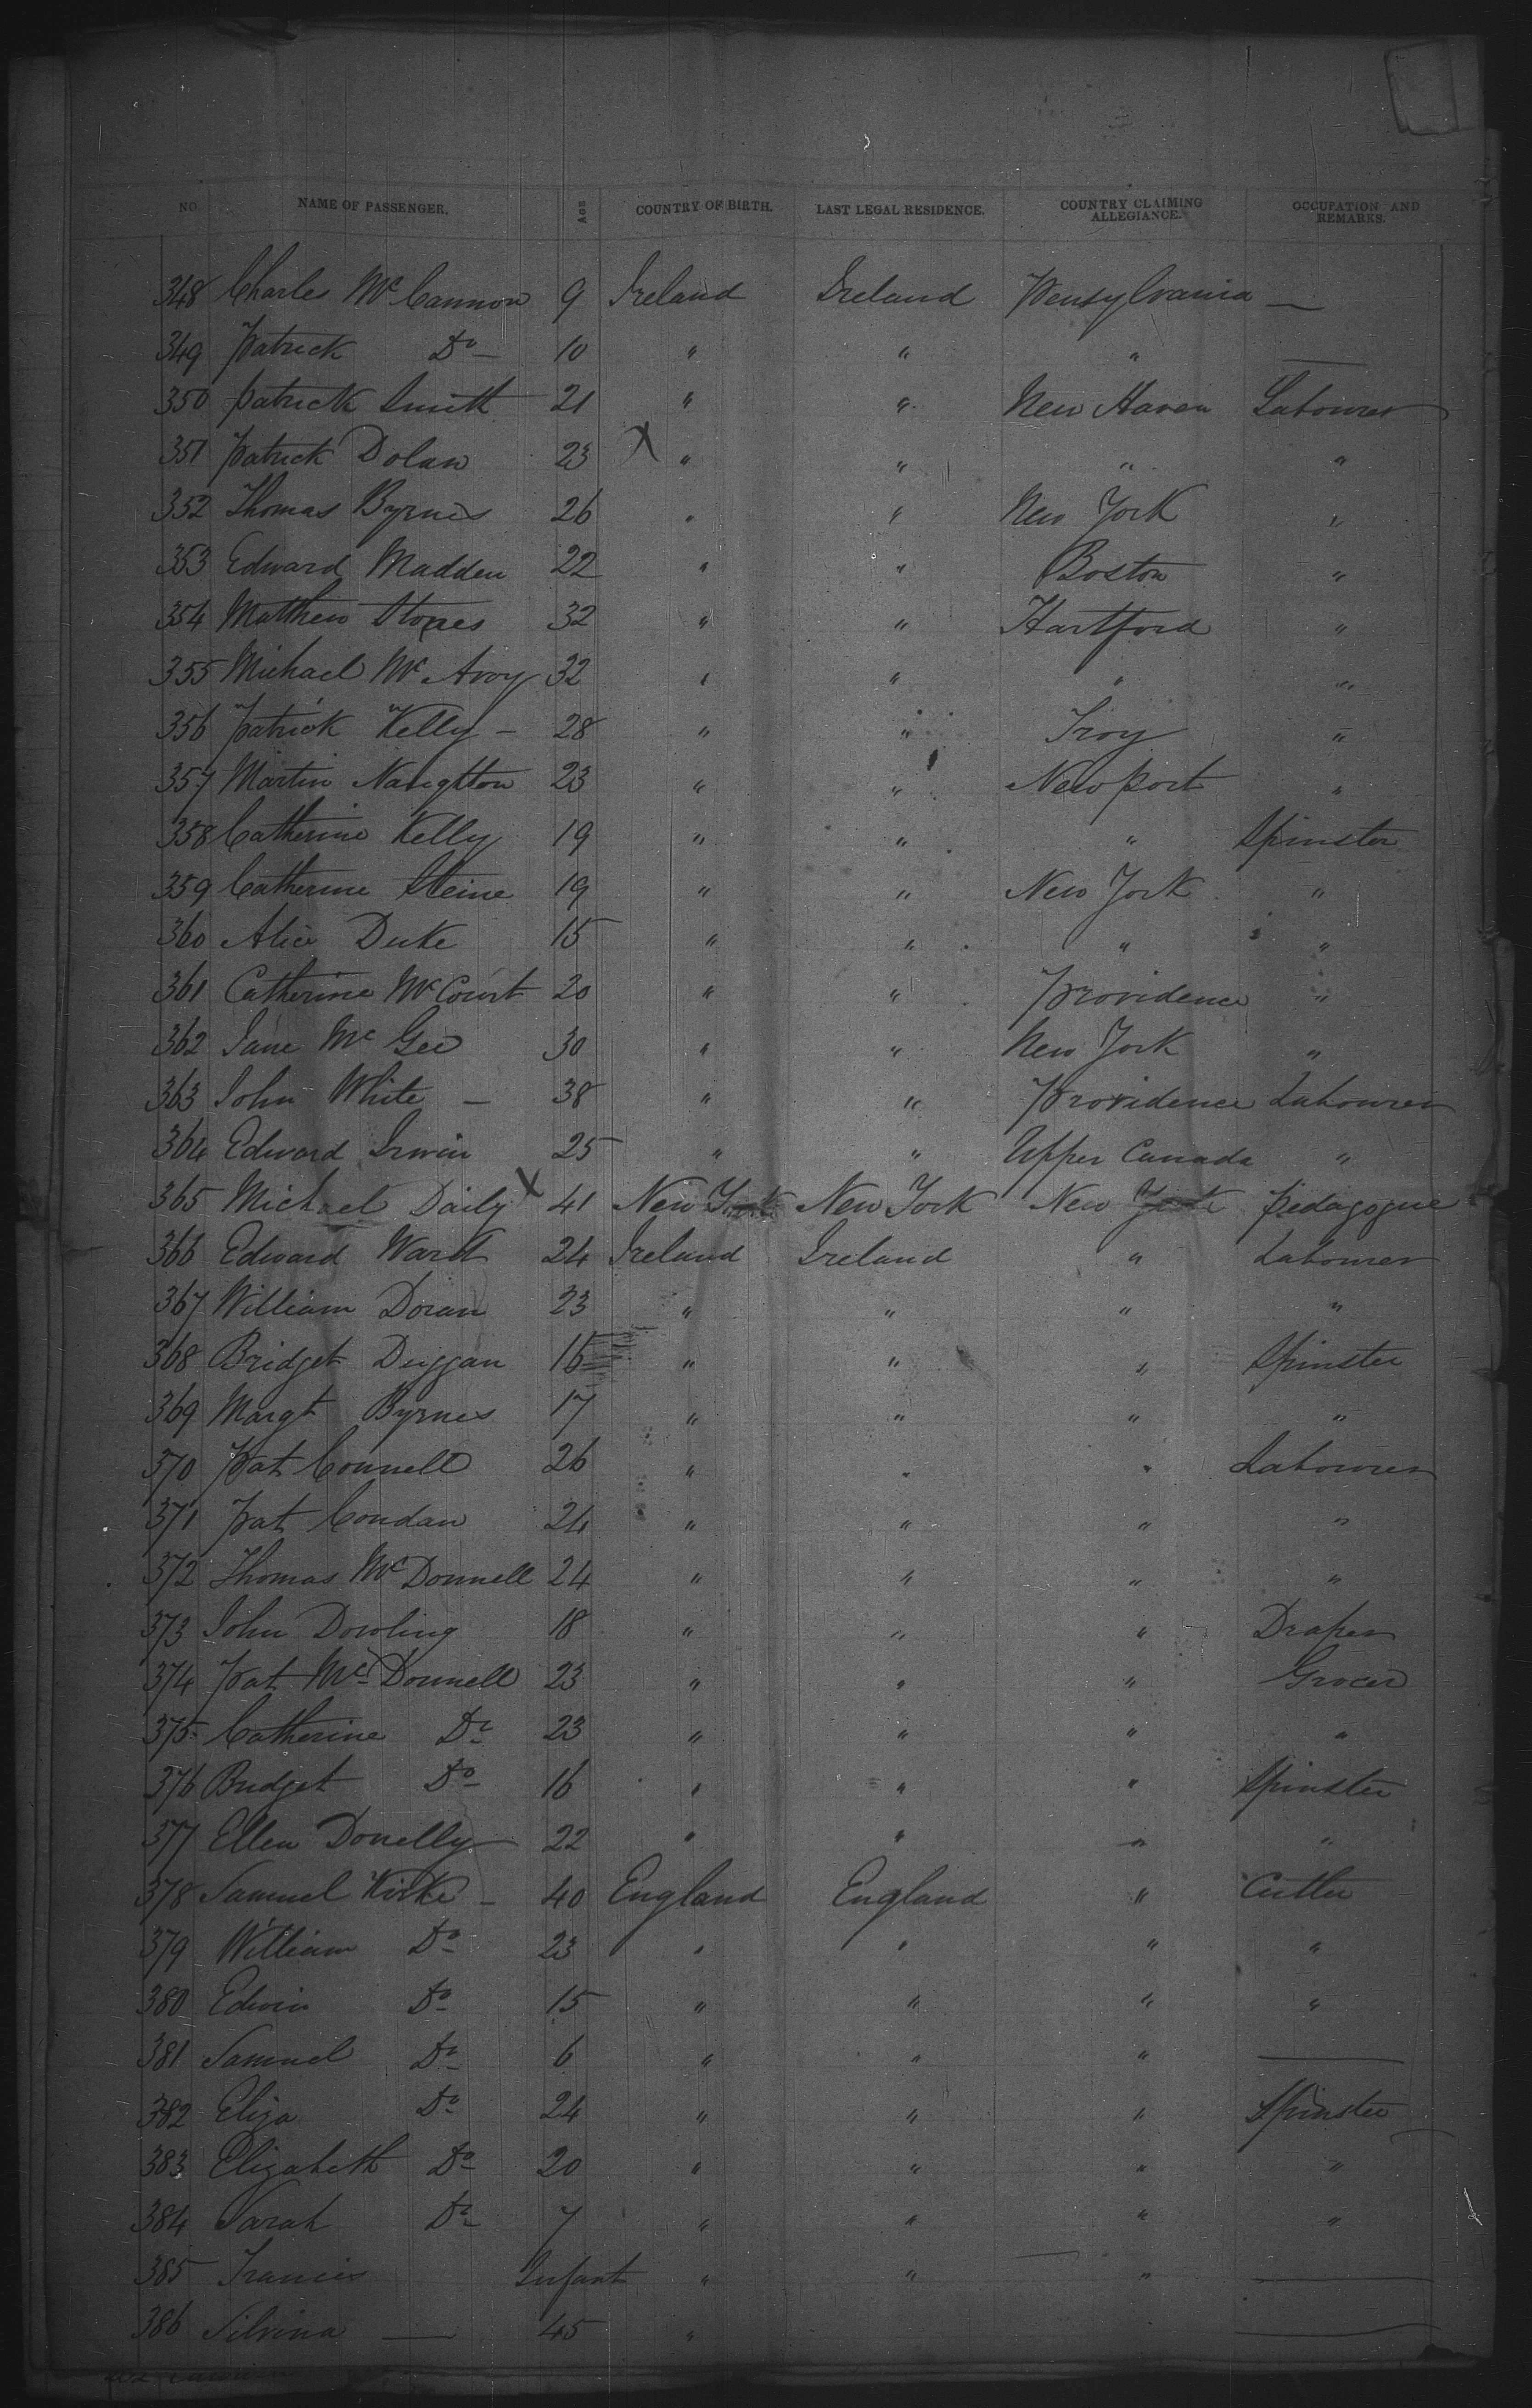 NO. NAME OF PASSENGER. AGE COUNTRY OF BIRTH. LAST LEGAL RESIDENCE. COUNTRY CLAIMING ALLEGIANCE. OCCUPATION AND REMARKS.
348 Charles Mc Cannon 9 Ireland Ireland Pensylvania —
349 Patrick Do 10 " " " —
350 Patrick Smith 21 " " New Haven Labourer
351 Patrick Dolan 23 X " " " "
352 Thomas Byrnes 26 " " New York "
353 Edward Madden 22 " " Boston "
354 Matthew Stones 32 " " Hartford "
355 Michael Mc Avoy 32 " " " "
356 Patrick Kelly — 28 " " Troy "
357 Martin Naughton 23 " " Newport "
358 Catherine Kelly 19 " " " Spinster
359 Catherine Steine 19 " " New York "
360 Alice Duke 15 " " " "
361 Catherine Mc Court 20 " " Providence "
362 Jane Mc Gee 30 " " New York "
363 John White — 38 " " Providence Labourer
364 Edward Irwin 25 " " Upper Canada "
365 Michael Daily X 41 New York New York New York Pedagogue
366 Edward Ward 24 Ireland Ireland " Labourer
367 William Doran 23 " " " "
368 Bridget Duggan 16 " " " Spinster
369 Margt Byrnes 17 " " " "
370 Pat Connell 26 " " " Labourer
371 Pat Condan 24 " " " "
372 Thomas Mc Donnell 24 " " " "
373 John Dowling 18 " " " Draper
374 Pat Mc Donnell 23 " " " Grocer
375 Catherine Do 23 " " " "
376 Bridget Do 16 " " " Spinster
377 Ellen Donelly 22 " " " "
378 Samuel Kirke — 40 England England " Cutler
379 William Do 23 " " " "
380 Edwin Do 15 " " " "
381 Samuel Do 6 " " " —
382 Eliza Do 24 " " " Spinster
383 Elizabeth Do 20 " " " "
384 Sarah Do 7 " " " "
385 Francis Infant " " " —
386 Silvina — 45 " —